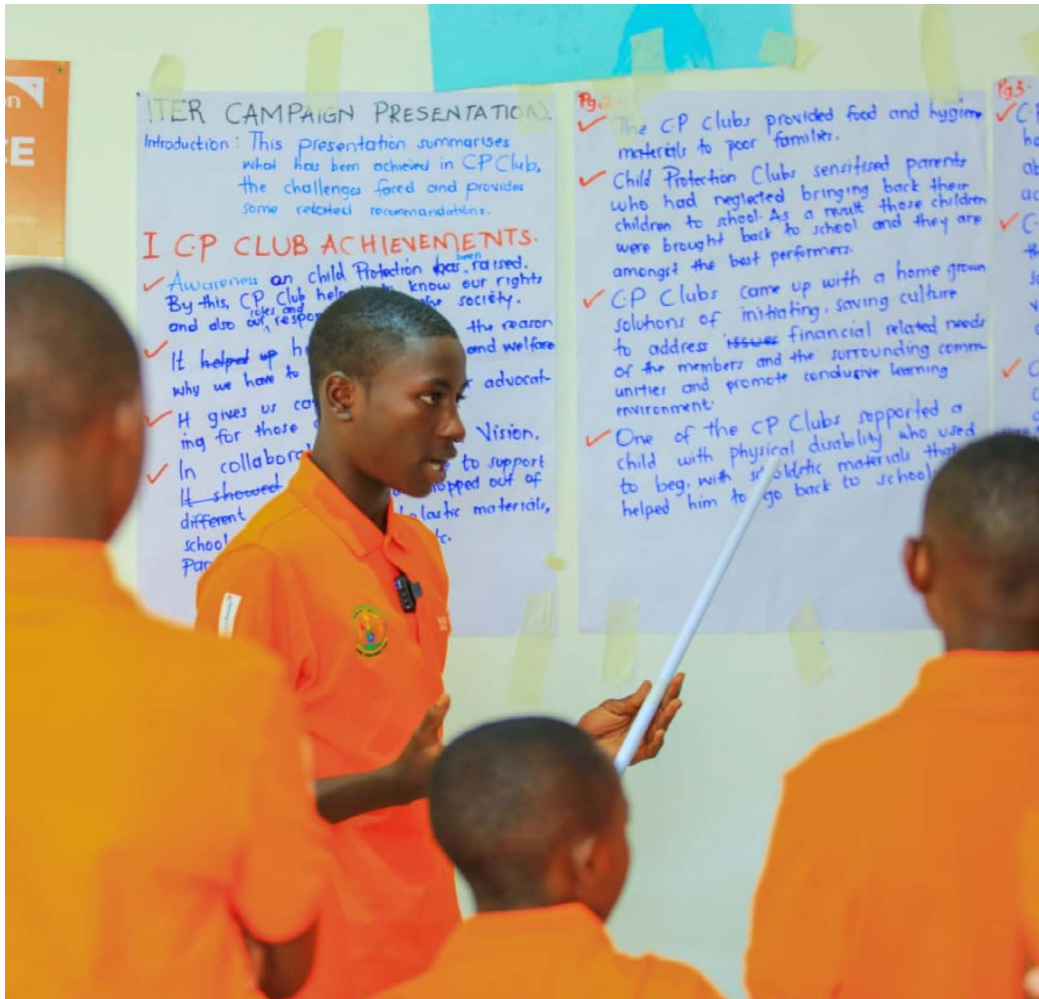 ITER CAMPAIGN PRESENTATION.
Introduction: This presentation summarises
what has been achieved in CP Club,
the challenges faced and provides
some related recommendations.
I C.P CLUB ACHIEVEMENTS.
Awareness on child Protection has been raised.
By this, CP Club know our rights
and also our roles and society.
It helped up the reason
why we have to and welfare
It gives us advocat-
ing for those Vision,
In to support
It showed opped out of
different lastic materials,
school tc.
Pg 2.
The C.P Clubs provided food and hygiene
materials to poor families.
Child Protection Clubs sensitised parents
who had neglected bringing back their
children to school. As a result those children
were brought back to school and they are
amongst the best performers.
C.P Clubs came up with a home grown
solutions of initiating, saving culture
to address issues financial related needs
of the members and the surrounding comm-
unities and promote conducive learning
environment.
One of the CP Clubs supported a
child with physical disability who used
to beg, with materials that
helped him to go back to school
Pg 3.
on
CE